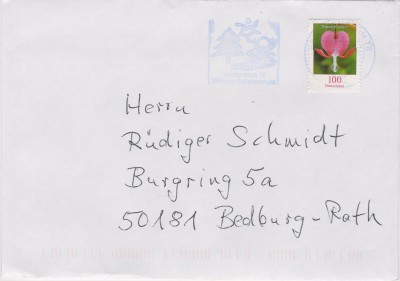 100
Deutschland
Herrn
Rüdiger Schmidt
Burgring 5a
50181 Bedburg-Rath